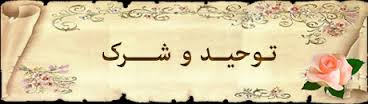 توحید و شرک